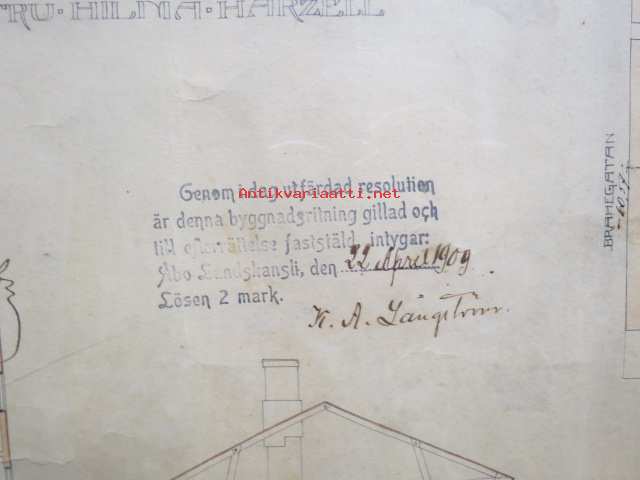 FRU · HILMA · HARZELL
Genom i dag utfärdad resolution
Antikvariaatti.net
är denna byggnadsritning gillad och
till efterrättelse fastställd, intygar:
Åbo Landskansli, den 22 April 1909.
Lösen 2 mark.
K. A. Långström.
BRAHEGATAN